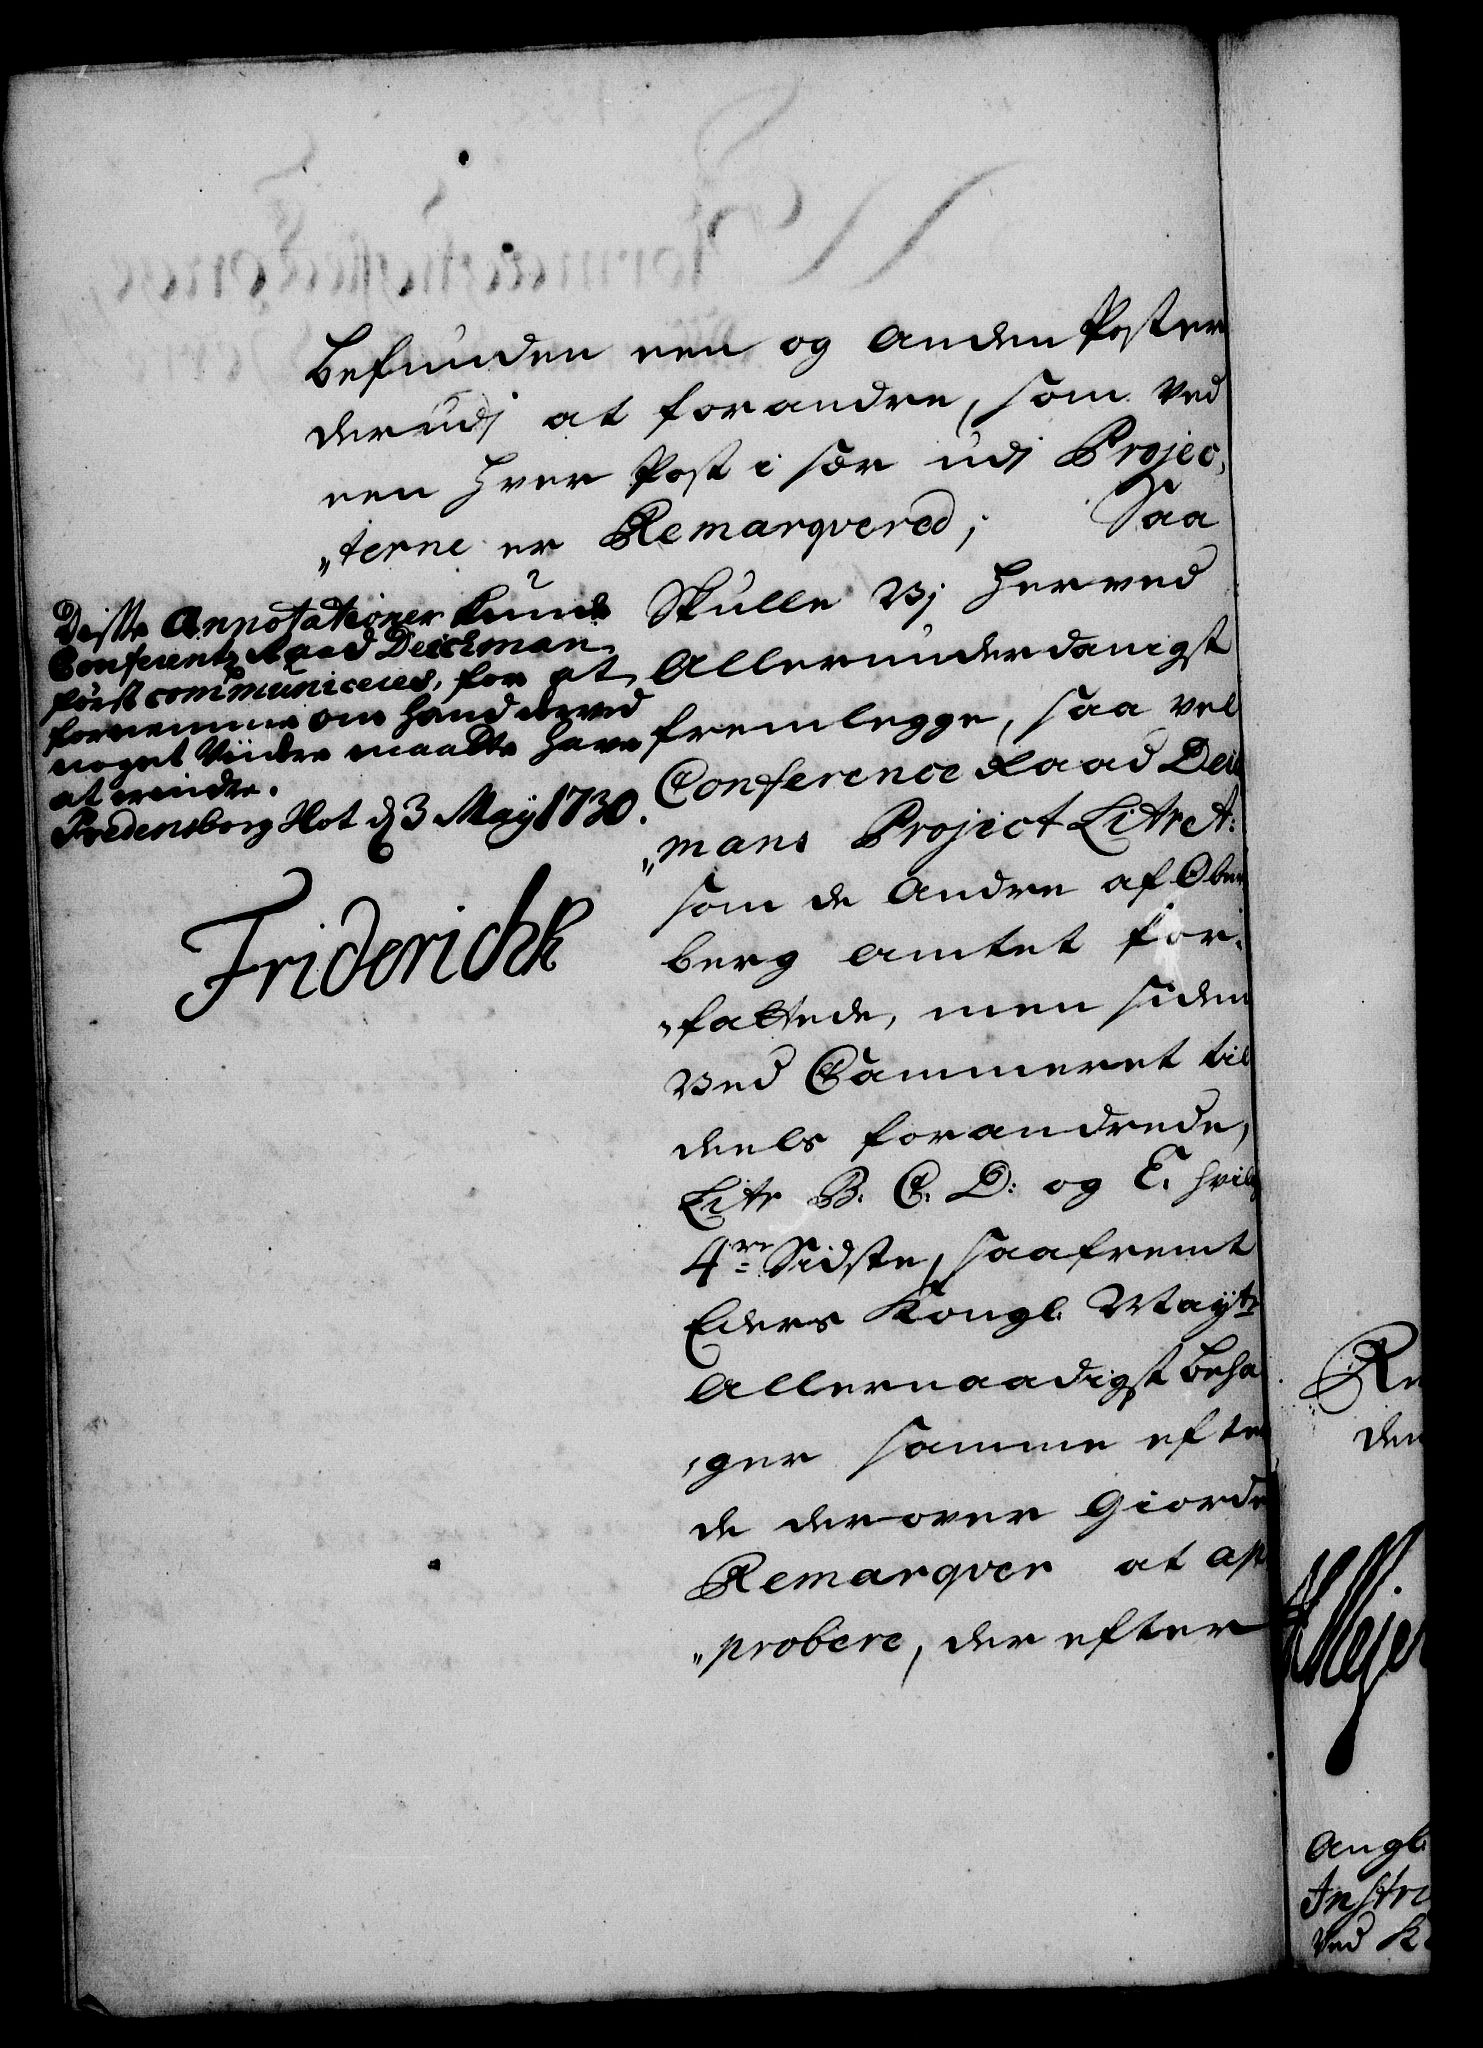 befunden een og anden Poster
derudj at forandre, som ved
een hver Post i sær udj Projec,
„terne er Remarqvered; Saa
Skulle Vj herved
allerunderdanigst
fremlegge, saa vel
Conference Raad Deic
„mans Project Litr A:
som de andre af Ober
berg amtet for,
„fattede, men siden
ved Cammeret til
deels forandrede,
Litr B. C. D: og E. hvilk
4re Sidste, saafremt
Eders Kongl. Mayts
allernaadigst beha
„ger samme efter
de derover Giorde
Remarqver at ap
„probere, der efter
Disse Annotationer kunde
Conferentz Raad Deichman
först communiceres, for at
fornemme om hand derved
noget Videre maatte have
at erindre.
Fredensborg Slot d 3 May 1730.
Friderich R
Re
den
Meje
angl.
Instru
ved K